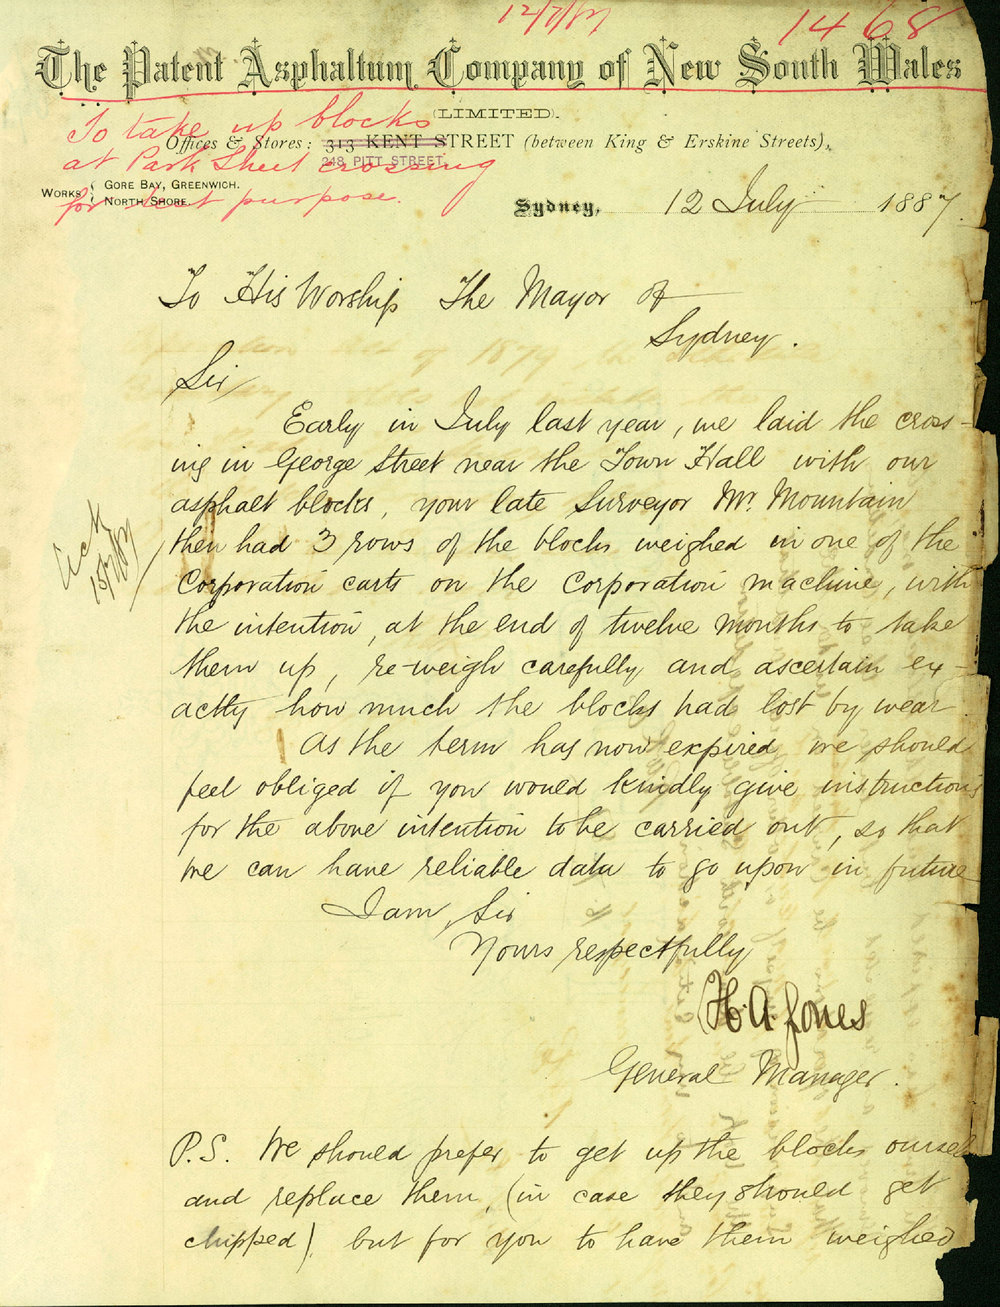 12/7/87
1468
The Patent Asphaltum Company of New South Wales
(LIMITED).
To take up blocks
at Park Street crossing
for test purpose.
Offices & Stores: 313 KENT STREET (between King & Erskine Streets),
248 PITT STREET,
WORKS { GORE BAY, GREENWICH.
NORTH SHORE.
Sydney, 12 July 1887.
To His Worship The Mayor of
Sydney.
Sir
Early in July last year, we laid the cross-
ing in George Street near the Town Hall with our
asphalt blocks, your late Surveyor Mr. Mountain
then had 3 rows of the blocks weighed in one of the
Corporation carts on the Corporation machine, with
the intention, at the end of twelve months to take
them up, re-weigh carefully and ascertain ex-
actly how much the blocks had lost by wear
As the term has now expired we should
feel obliged if you would kindly give instructions
for the above intention to be carried out, so that
we can have reliable data to go upon in future
I am, Sir
Yours respectfully
H. A. Jones
General Manager.
P.S. We should prefer to get up the blocks oursel
and replace them, (in case they should get
chipped), but for you to have them weighed
Ack
15/7/87